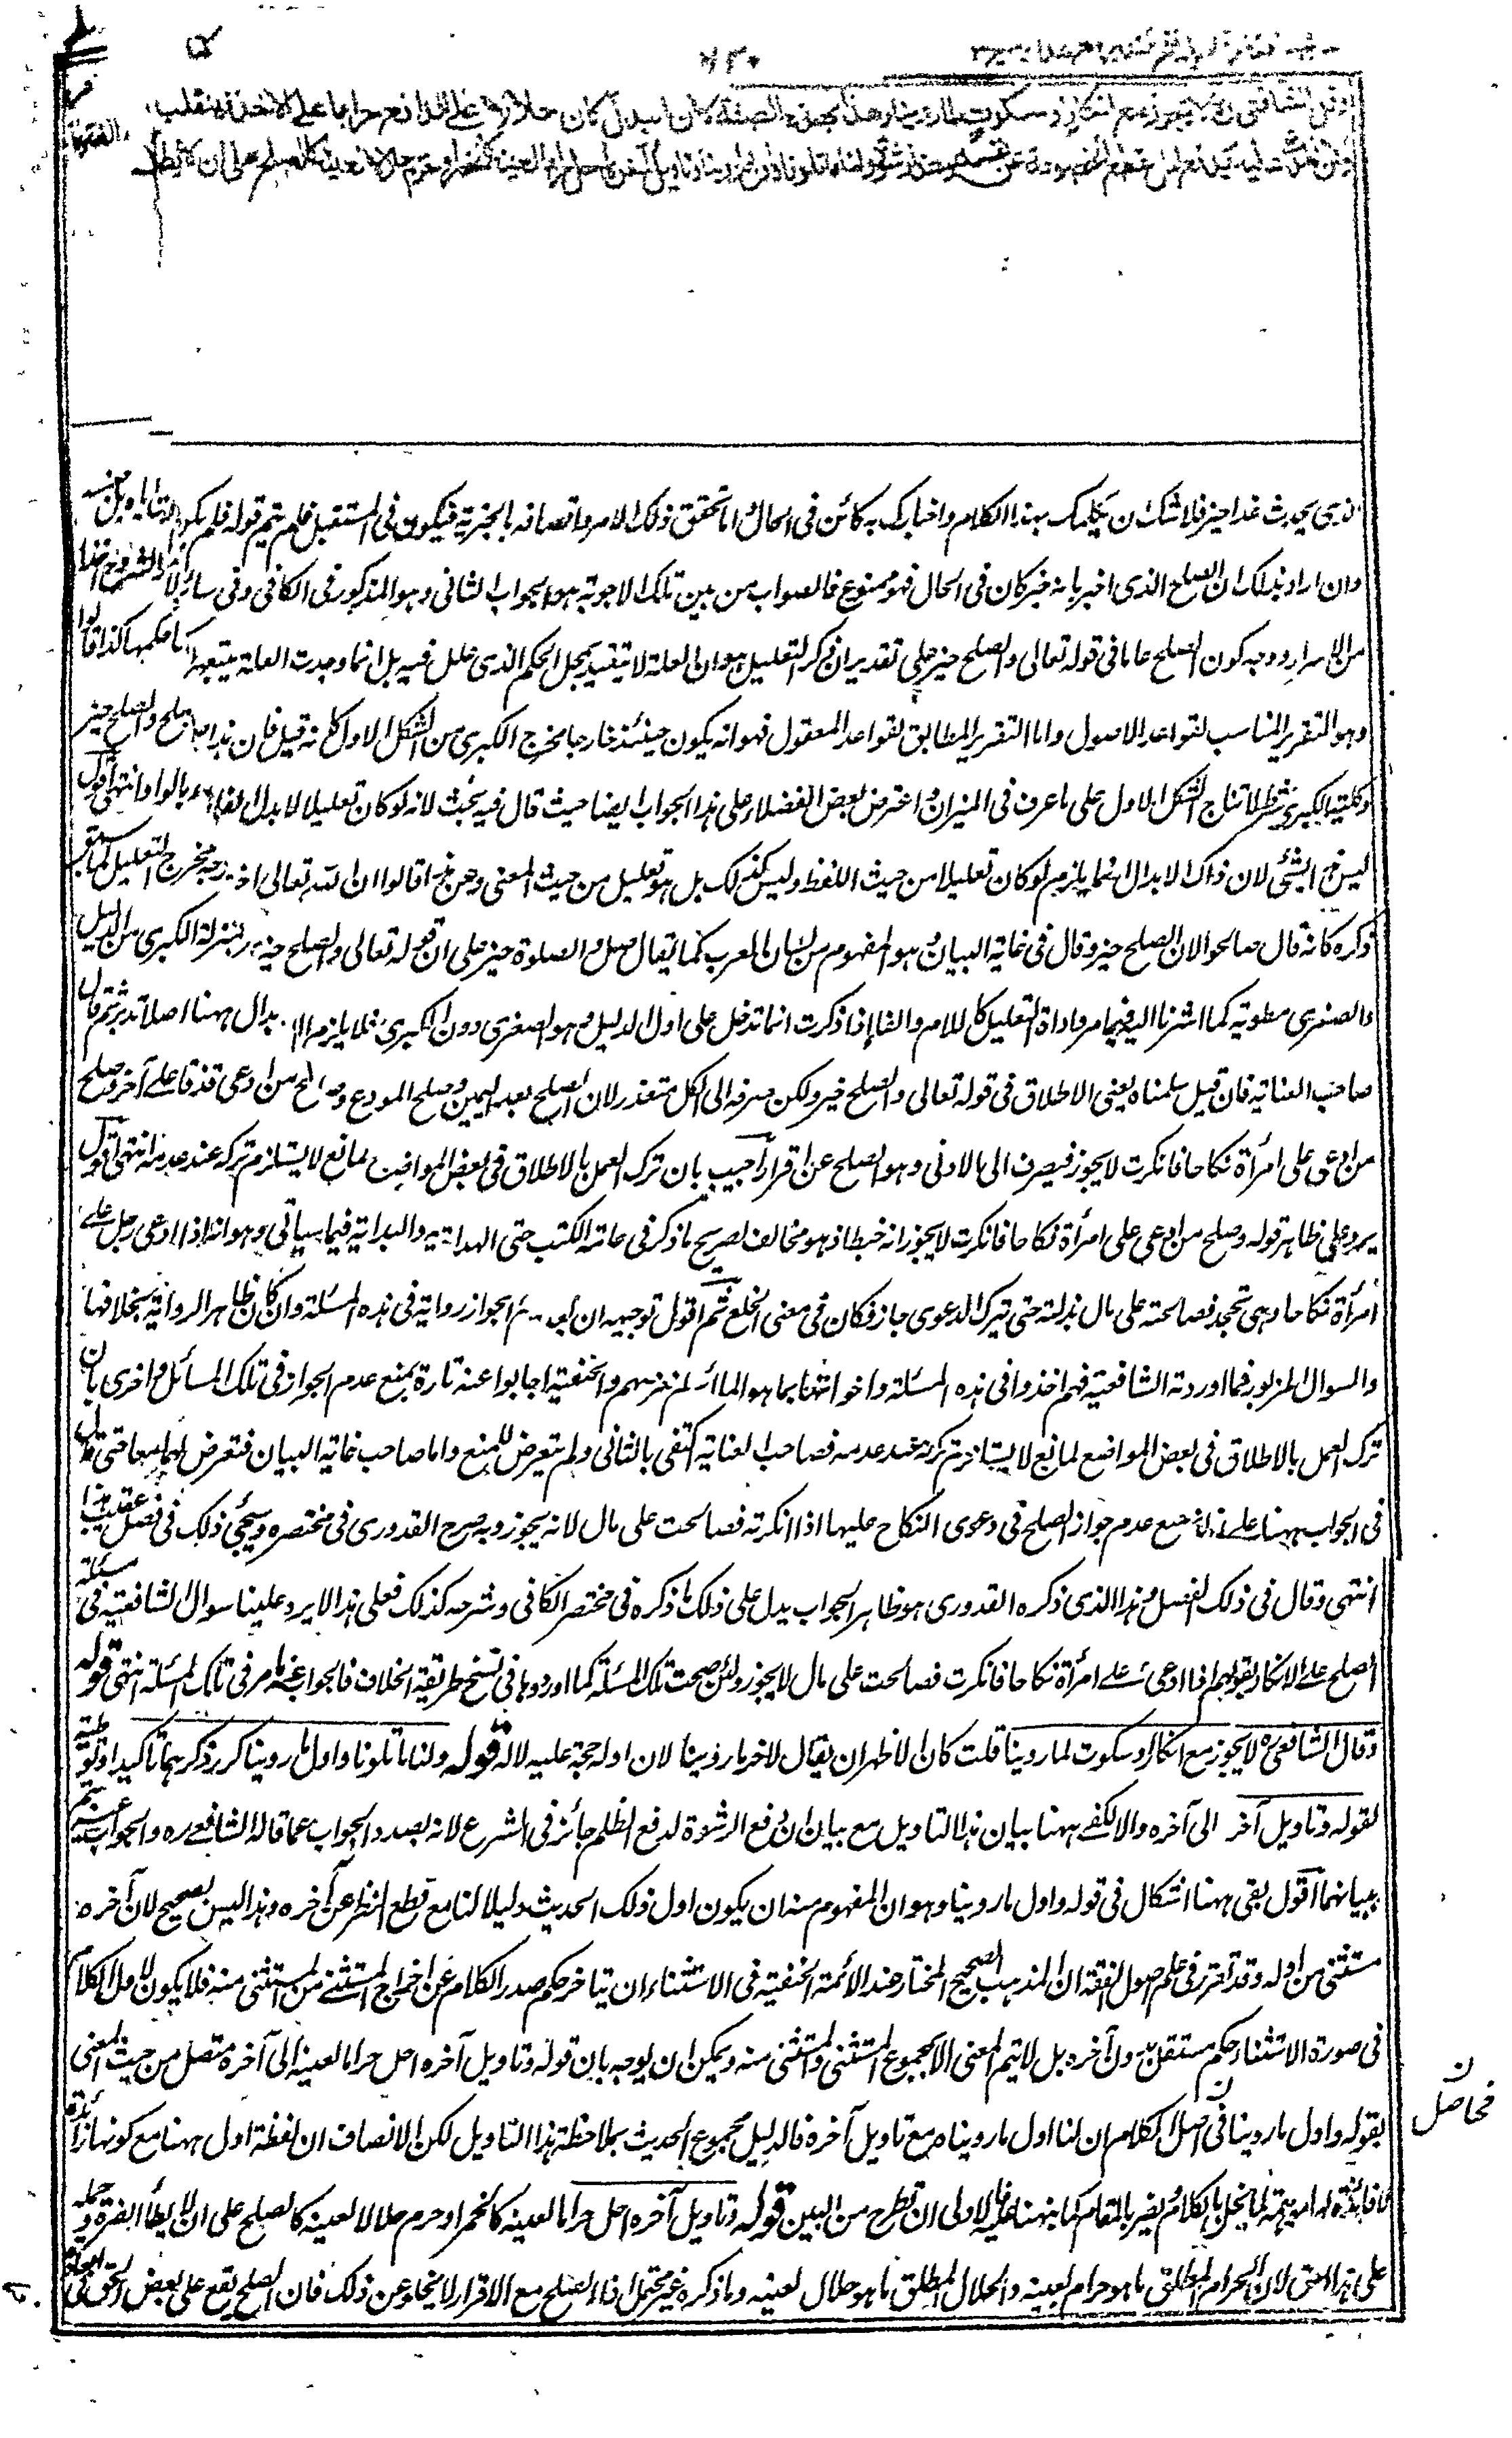 وقال الشافعي لا يجوز مع انكار وسكوت لما روينا وهذا بهذه الصفة لان البدل كان حلالا على الدافع حراما على الآخذ فينقلب
الذي يحدث غدا خير فلا شك ان تكلمك بهذا الكلام واخبارك به كائن في الحال واما تحقق ذلك الامر واتصافه بالخيرية فيكون في المستقبل فلم يتم قوله فلم يكن
وان اراد بذلك ان الصلح الذي اخبر بانه خير كان في الحال فهو ممنوع فالصواب من بين تلك الاجوبة هو الجواب الثاني وهو المذكور في الكافي وفي سائر الشروح اخذا
من الاسرار ووجه كون الصلح عاما في قوله تعالى والصلح خير على تقدير ان ذكر للتعليل هو ان العلة لا تتقيد بمحل الحكم الذي علل فيه بل انما وجدت العلة يتبعها حكمها كذا قالوا
وهو التقرير المناسب لقواعد الاصول واما التقرير المطابق لقواعد المعقول فهو انه يكون حينئذ خارجا مخرج الكبرى من الشكل الاول كانه قيل فان هذا صلح والصلح خير
وكلية الكبرى شرط لانتاج الشكل الاول على ما عرف في الميزان واعترض بعض الفضلاء على هذا الجواب ايضا حيث قال فيه بحث لانه لو كان تعليلا لا بدال الفاء بالواو انتهى اقول
ليس هذا بشئ لان ذاك الابدال انما يلزم لو كان تعليلا من حيث اللفظ وليس كذلك بل هو تعليل من حيث المعنى وعن هذا قالوا ان الله تعالى اخرجه مخرج التعليل لما سبق
ذكره كانه قال صالحوا لان الصلح خير وقال في غاية البيان وهو المفهوم من لسان العرب كما يقال صل والصلوة خير على ان قوله تعالى والصلح خير بمنزلة الكبرى من الدليل
والصغرى مطوية كما اشرنا اليه فيما مر واداة التعليل كاللام والفاء اذا ذكرت انما تدخل على اول الدليل وهو الصغرى دون الكبرى فلا يلزم الابدال ههنا اصلا تدبر ثم قال
صاحب العناية فان قيل سلمناه يعني الاطلاق في قوله تعالى والصلح خير ولكن صرفه الى الكل متعذر لان الصلح بعد اليمين وصلح المودع وصلح من ادعى قذفا على آخر وصلح
من ادعى على امرأة نكاحا فانكرت لا يجوز فيصرف الى الادنى وهو الصلح عن اقرار اجيب بان ترك العمل بالاطلاق في بعض المواضع لمانع لا يستلزم تركه عند عدمه انتهى اقول
يرد على ظاهر قوله وصلح من ادعى على امرأة نكاحا فانكرت لا يجوز انه خبط اذ هو مخالف لصريح ما ذكر في عامة الكتب حتى الهداية والبداية فيما سياتي وهو انه اذا ادعى رجل على
امرأة نكاحا وهي تجحد فصالحته على مال بذلته حتى يترك الدعوى جاز فكان في معنى الخلع ثم اقول توجيهه ان الجواز رواية في هذه المسئلة وان كان ظاهر الرواية بخلافها
والسوال المزبور فيما اوردته الشافعية فهم اخذوا في هذه المسئلة واخواتها بما هو الملائم لمذهبهم والحنفية اجابوا عنه تارة بمنع عدم الجواز في تلك المسائل واخرى بان
ترك العمل بالاطلاق في بعض المواضع لمانع لا يستلزم تركه عند عدمه فصاحب العناية اكتفى بالثاني ولم يتعرض للمنع واما صاحب غاية البيان فتعرض لهما معا حتى قال
في الجواب ههنا على انا نمنع عدم جواز الصلح في دعوى النكاح عليها اذا انكرته فصالحت على مال لانه يجوز وبه صرح القدوري في مختصره وسيجئ ذلك في فصل عقيب هذا
انتهى وقال في ذلك الفصل وهذا الذي ذكره القدوري هو ظاهر الجواب يدل على ذلك ما ذكره في مختصر الكافي وشرحه كذلك فعلى هذا لا يرد علينا سوال الشافعية في مسئلة
الصلح على الانكار بقولهم اذا ادعى على امرأة نكاحا فانكرت فصالحت على مال لا يجوز ولئن صحت تلك المسئلة كما اوردوها في نسخ طريقة الخلاف فالجواب عنه ما مر في تلك المسئلة انتهى قوله
وقال الشافعي ره لا يجوز مع انكار وسكوت لما روينا قلت كان الاظهر ان يقال لآخر ما روينا لان اوله حجة عليه لا له قوله ولنا ما تلونا واول ما روينا كرر ذكرهما تاكيدا وتوطية
لقوله وتاويل آخر الى آخره والا لكفى ههنا بيان هذا التاويل مع بيان ان دفع الرشوة لدفع الظلم جائز في الشرع لانه بصدد الجواب عما قاله الشافعي ره والجواب يتم
ببيانهما اقول بقى ههنا اشكال في قوله واول ما روينا وهو ان المفهوم منه ان يكون اول ذلك الحديث دليلا لنا مع قطع النظر عن آخره وهذا ليس بصحيح لان آخره
مستثنى من اوله وقد تقرر في علم اصول الفقه ان المذهب الصحيح المختار عند الائمة الحنفية في الاستثناء ان يتاخر حكم صدر الكلام عن اخراج المستثنى من المستثنى منه فلا يكون لاول الكلام
في صورة الاستثناء حكم مستقل بدون آخره بل لا يتم المعنى الا بمجموع المستثنى والمستثنى منه ويمكن ان يوجه بان قوله وتاويل آخره احل حراما لعينه الى آخره متصل من حيث المعنى
بقوله واول ما روينا فحاصل الكلام ان لنا اول ما رويناه مع تاويل آخره فالدليل مجموع الحديث بملاحظة هذا التاويل لكن الانصاف ان لفظة اول ههنا مع كونها زائدة
لا فائدة لها مهمة لما يخل بالكلام ويضر بالمقام كما نبهنا عليه فالاولى ان تطرح من البين قوله وتاويل آخره احل حراما لعينه كالخمر او حرم حلالا لعينه كالصلح على ان لا يطأ الضرة وحمله
على هذا احق لان الحرام المطلق ما هو حرام لعينه والحلال المطلق ما هو حلال لعينه وما ذكره غير محتمل اذ الصلح مع الاقرار لا يخلو عن ذلك فان الصلح يقع على بعض الحق في العادة
فحاصل ن